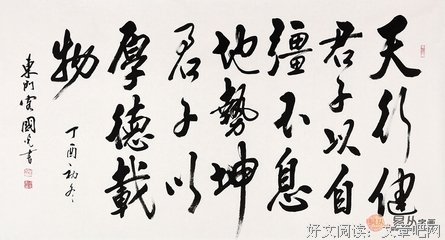 天行健
君子以自
彊不息
地勢坤
君子以
厚德載
物
丁酉初冬
東 國 書
易从字画
好文阅读：文章吧网